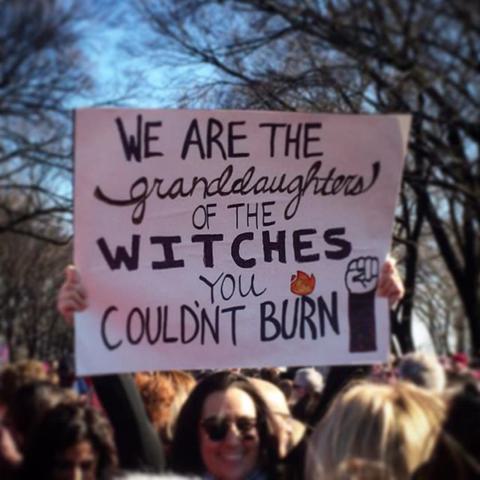 WE ARE THE
granddaughters
OF THE
WITCHES
YOU
COULDN'T BURN